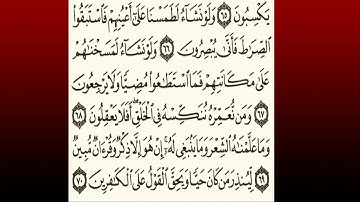 يَكْسِبُونَ ٦٥ وَلَوْ نَشَآءُ لَطَمَسْنَا عَلَىٰٓ أَعْيُنِهِمْ فَٱسْتَبَقُوا۟
ٱلصِّرَٰطَ فَأَنَّىٰ يُبْصِرُونَ ٦٦ وَلَوْ نَشَآءُ لَمَسَخْنَٰهُمْ
عَلَىٰ مَكَانَتِهِمْ فَمَا ٱسْتَطَٰعُوا۟ مُضِيًّا وَلَا يَرْجِعُونَ
٦٧ وَمَن نُّعَمِّرْهُ نُنَكِّسْهُ فِى ٱلْخَلْقِ ۖ أَفَلَا يَعْقِلُونَ ٦٨
وَمَا عَلَّمْنَٰهُ ٱلشِّعْرَ وَمَا يَنۢبَغِى لَهُۥٓ ۚ إِنْ هُوَ إِلَّا ذِكْرٌ وَقُرْءَانٌ مُّبِينٌ
٦٩ لِّيُنذِرَ مَن كَانَ حَيًّا وَيَحِقَّ ٱلْقَوْلُ عَلَى ٱلْكَٰفِرِينَ ٧٠